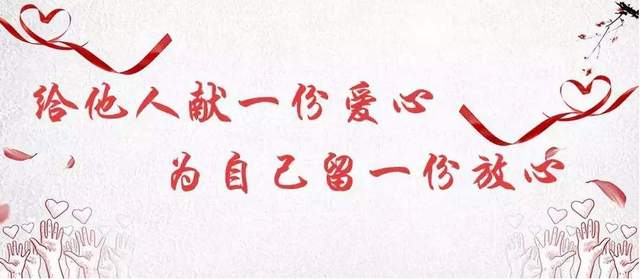 给他人献一份爱心
为自己留一份放心